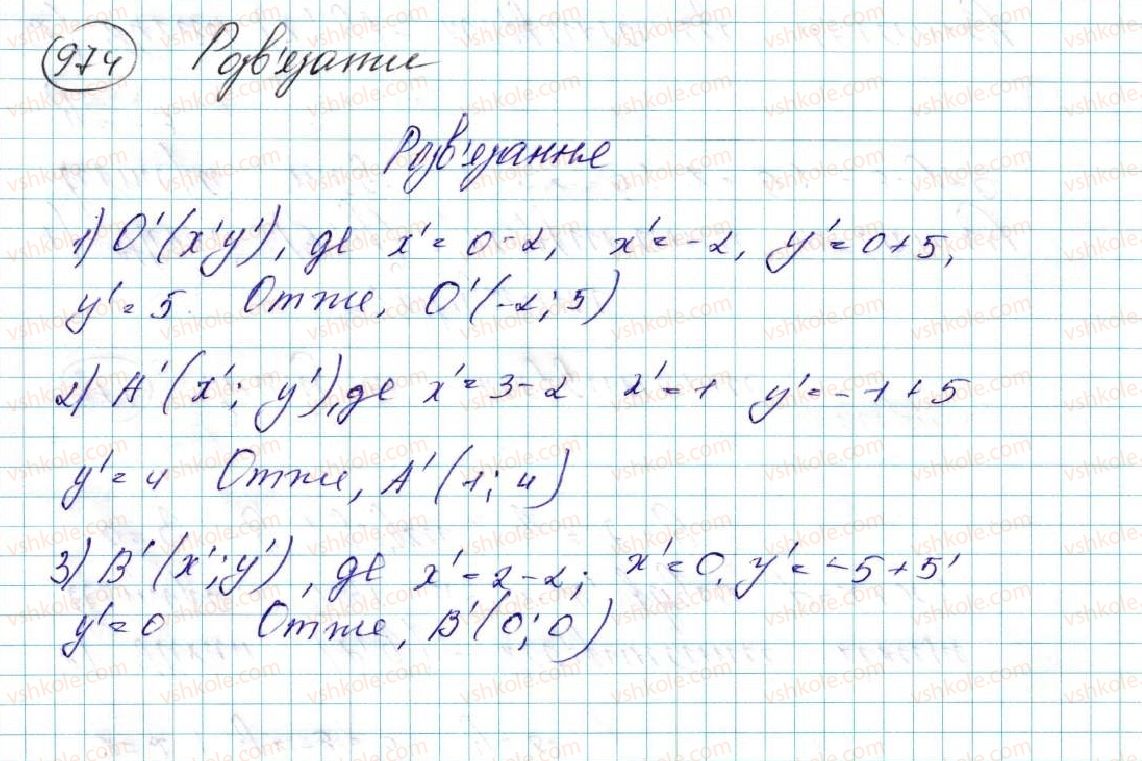 974 Розв'язати
Розв'язання
1) O'(x'y'), де x'=0-2, x'=-2, y'=0+5,
y'=5. Отже, O'(-2; 5)
2) A'(x'; y'), де x'=3-2 x'=1 y'=-1+5
y'=4 Отже, A'(1; 4)
3) B'(x'; y'), де x'=2-2; x'=0, y'=-5+5'
y'=0 Отже, B'(0; 0)